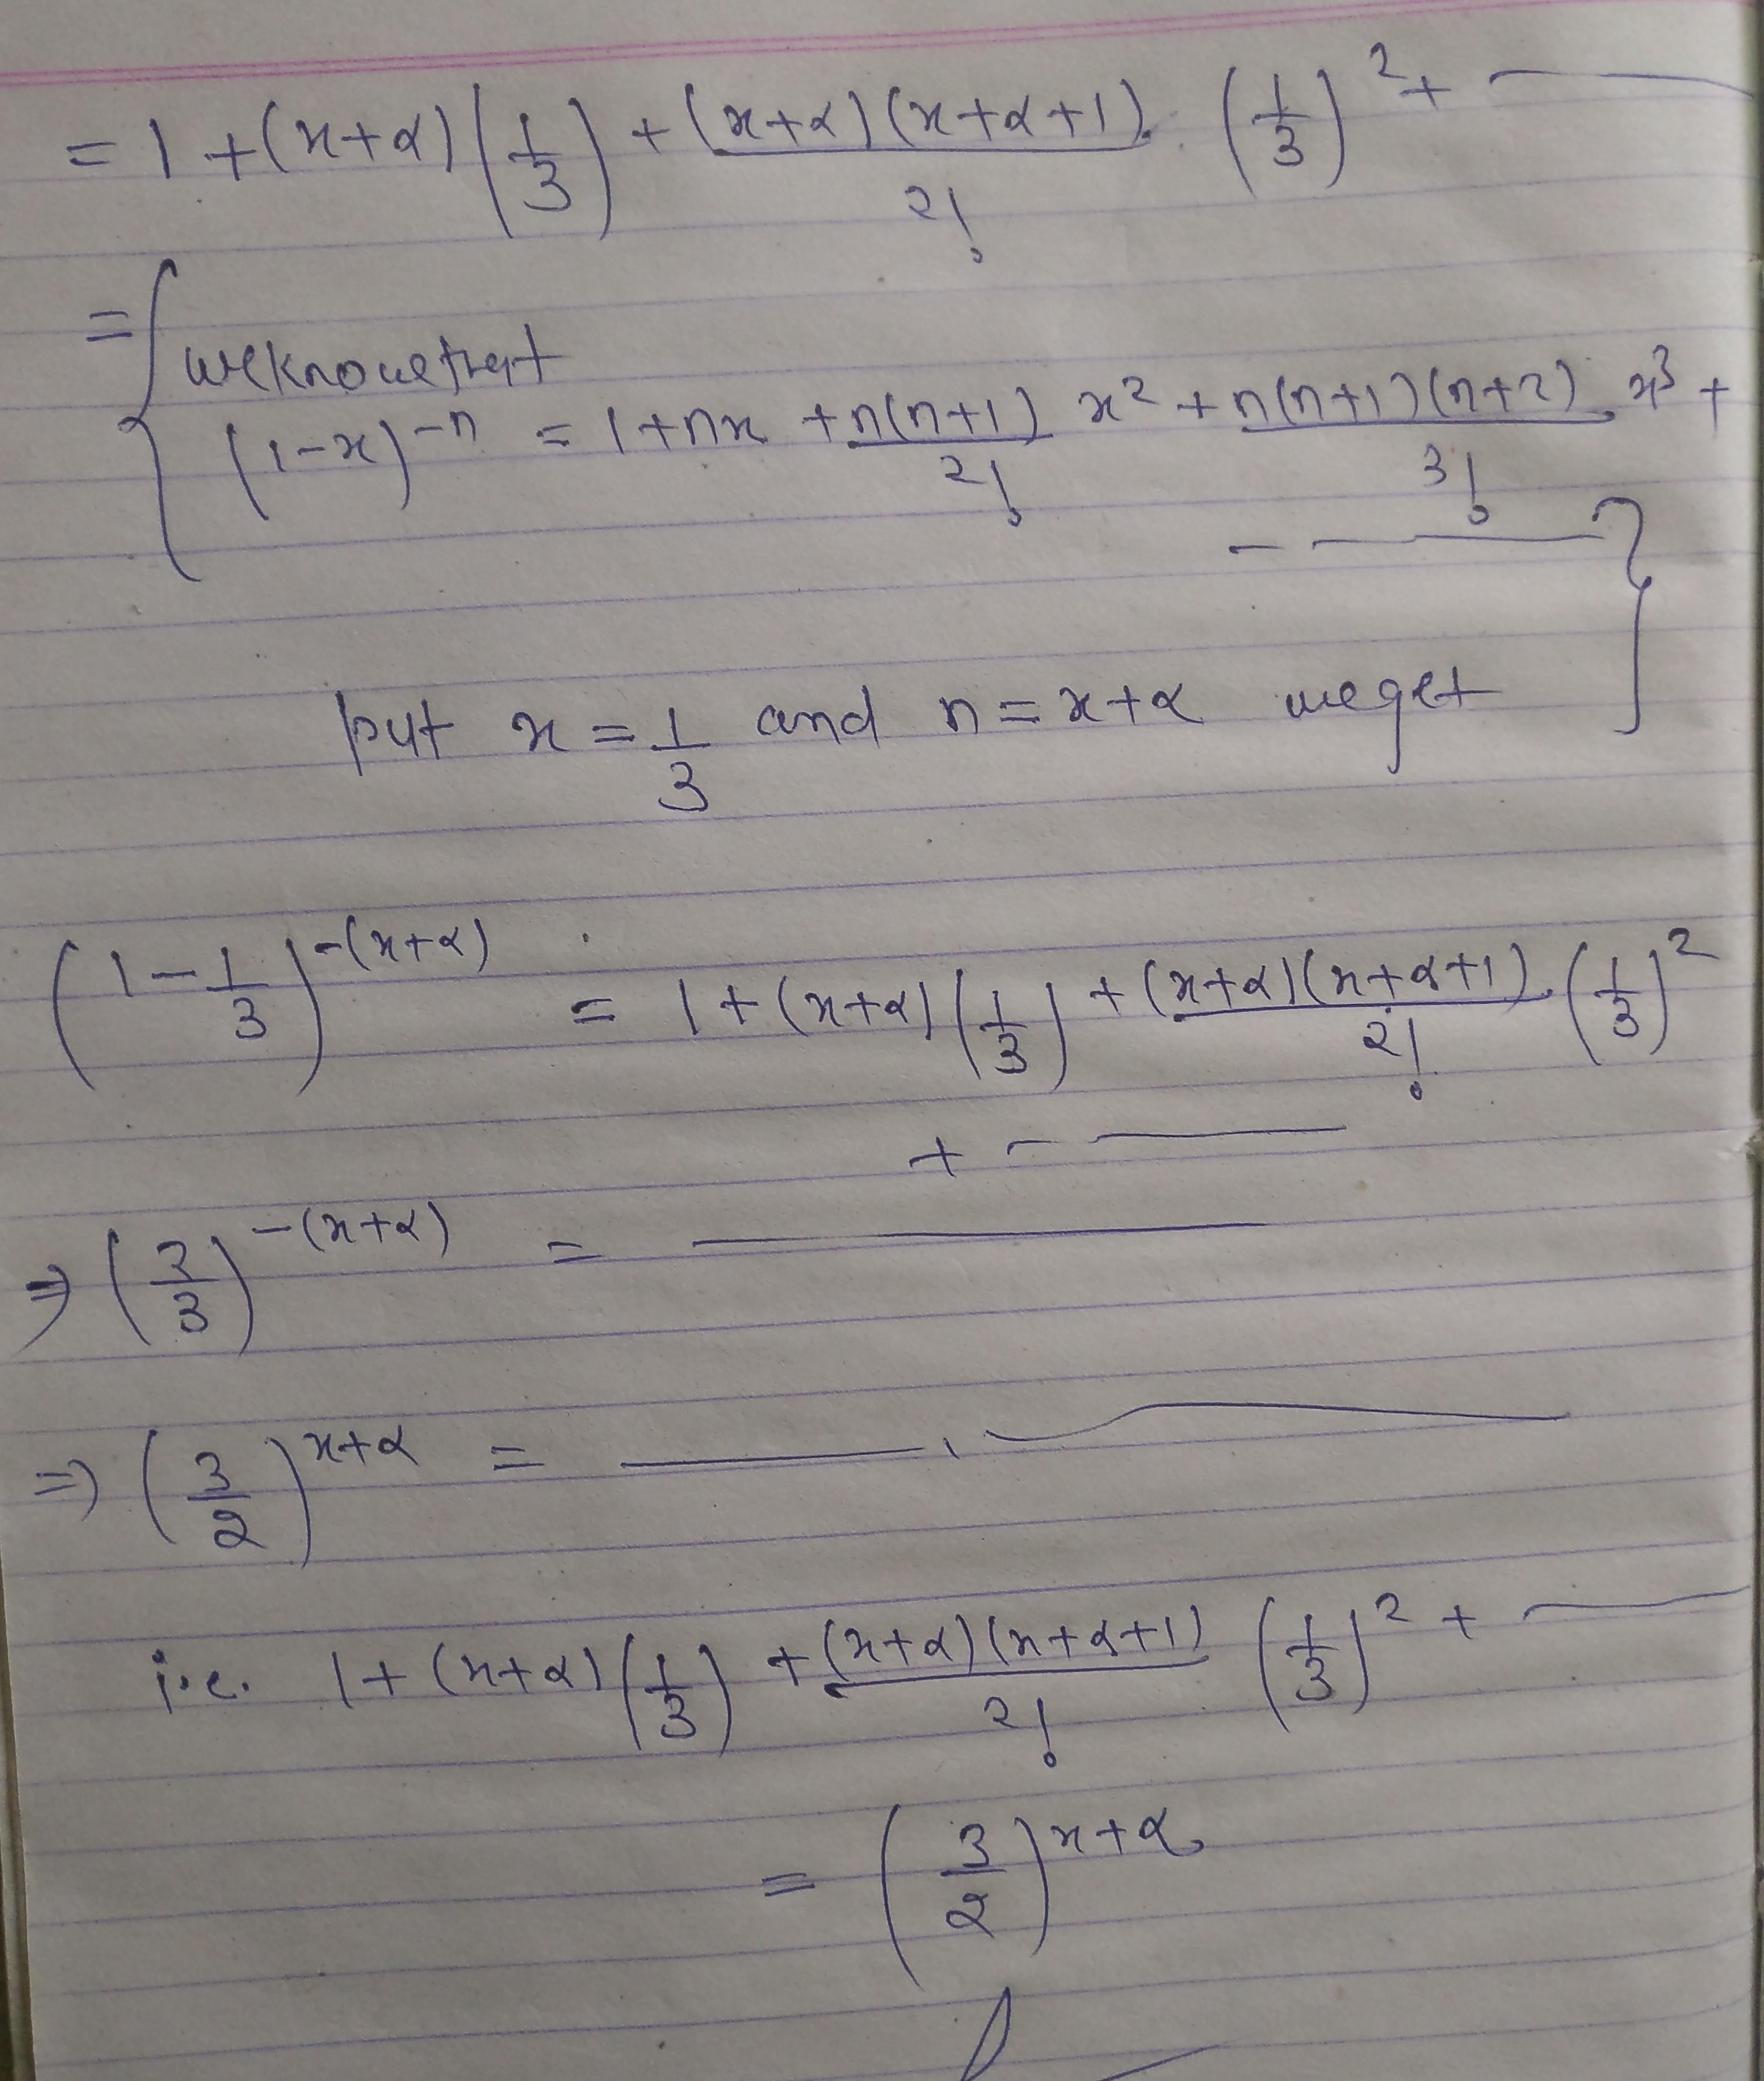 = 1 + (x+α) (1/3) + (x+α)(x+α+1)/2! . (1/3)² + ———
= { we know that
(1-x)⁻ⁿ = 1 + nx + n(n+1)/2! x² + n(n+1)(n+2)/3! . x³ +
- ——— }
put x = 1/3 and n = x+α we get
(1 - 1/3)^-(x+α) = 1 + (x+α) (1/3) + (x+α)(x+α+1)/2! . (1/3)²
+ - ———
⇒ (2/3)^-(x+α) = ———
⇒ (3/2)^x+α = ———
i.e. 1 + (x+α) (1/3) + (x+α)(x+α+1)/2! (1/3)² + ———
= (3/2)^x+α